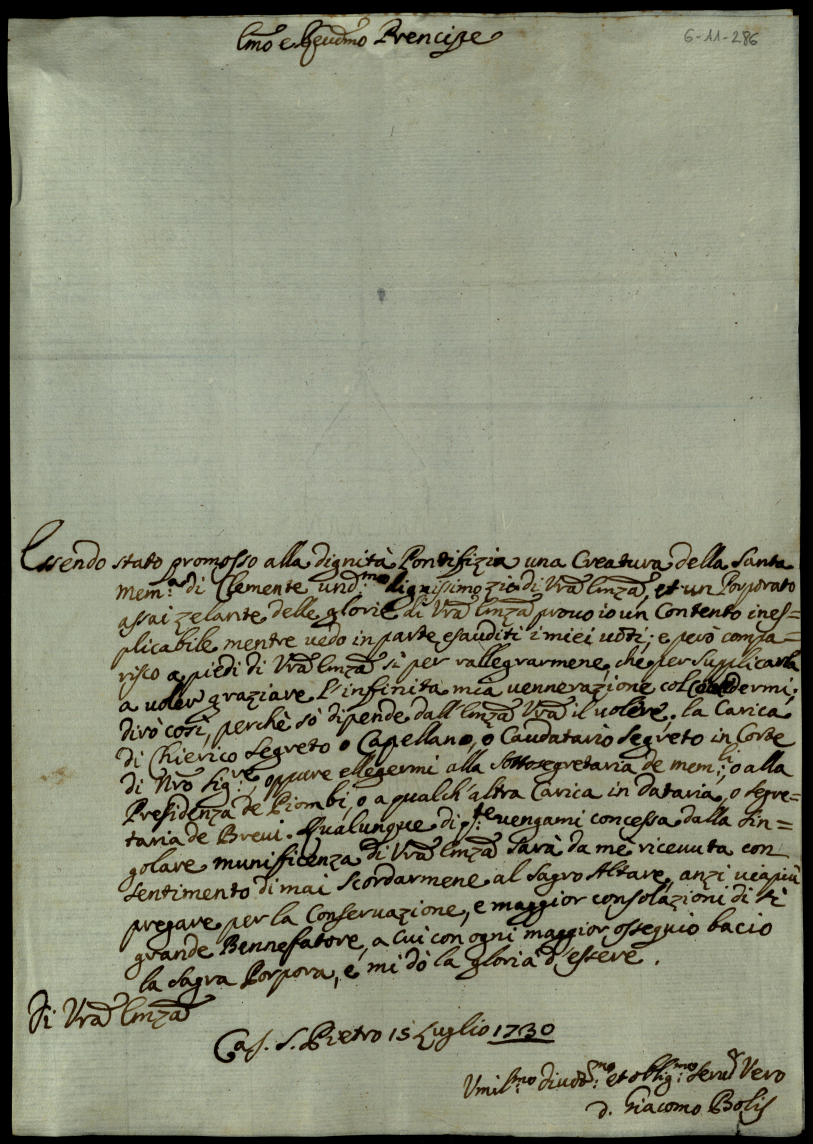 Emo e Reudmo Prencipe
6-11-286
Essendo stato promosso alla dignità Pontifizia una Creatura della Santa
mem.a di Clemente und.mo dignissimo zio di Vra Emza, et un Porporato
assai zelante delle glorie di Vra Emza prouo io un Contento ines=
plicabile mentre uedo in parte esauditi i miei uoti; e però compa=
risco a piedi di Vra Emza sì per rallegrarmene, che per supplicarla
a uoler graziare l'infinita mia uennerazione col
dirò così, perche sò dipende dall'Emza Vra il uolere, la Carica
di Chierico Segreto o Capellano, ò Caudatario Segreto in Corte
di Nro Sig.re, oppure ellegermi alla Sottosegretaria de mem.li, o alla
Presidenza de Piombi, o a qualch'altra Carica in dataria, o segre=
taria de Breui. Qualunque di q.te uengami concessa dalla sin=
golare munificenza di Vra Emza sarà da me riceuuta con
sentimento di mai scordarmene al Sagro Altare, anzi uiapiù
pregare per la Conseruazione, e maggior consolazioni di sì
grande Bennefatore, a cui con ogni maggior ossequio bacio
la Sagra Porpora, e mi dò la gloria d'essere.
Di Vra Emza
Cas. S. Pietro 15 Luglio 1730
Vmil.mo diuot.mo et obblig.mo Seru.r Vero
d. Giacomo Bolis